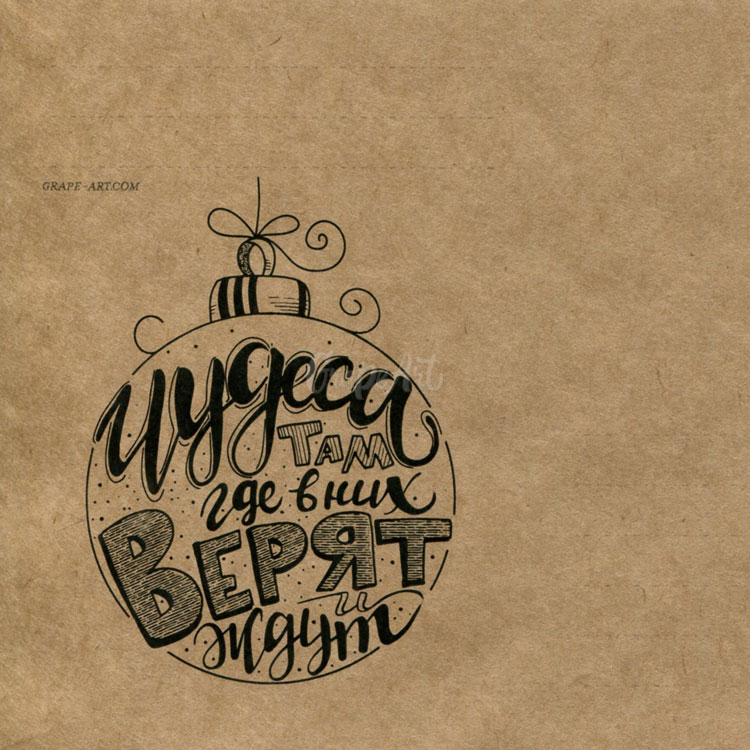 GRAPE-ART.COM
Чудеса
GrapeArt
там
где в них
ВЕРЯТ
и
ждут